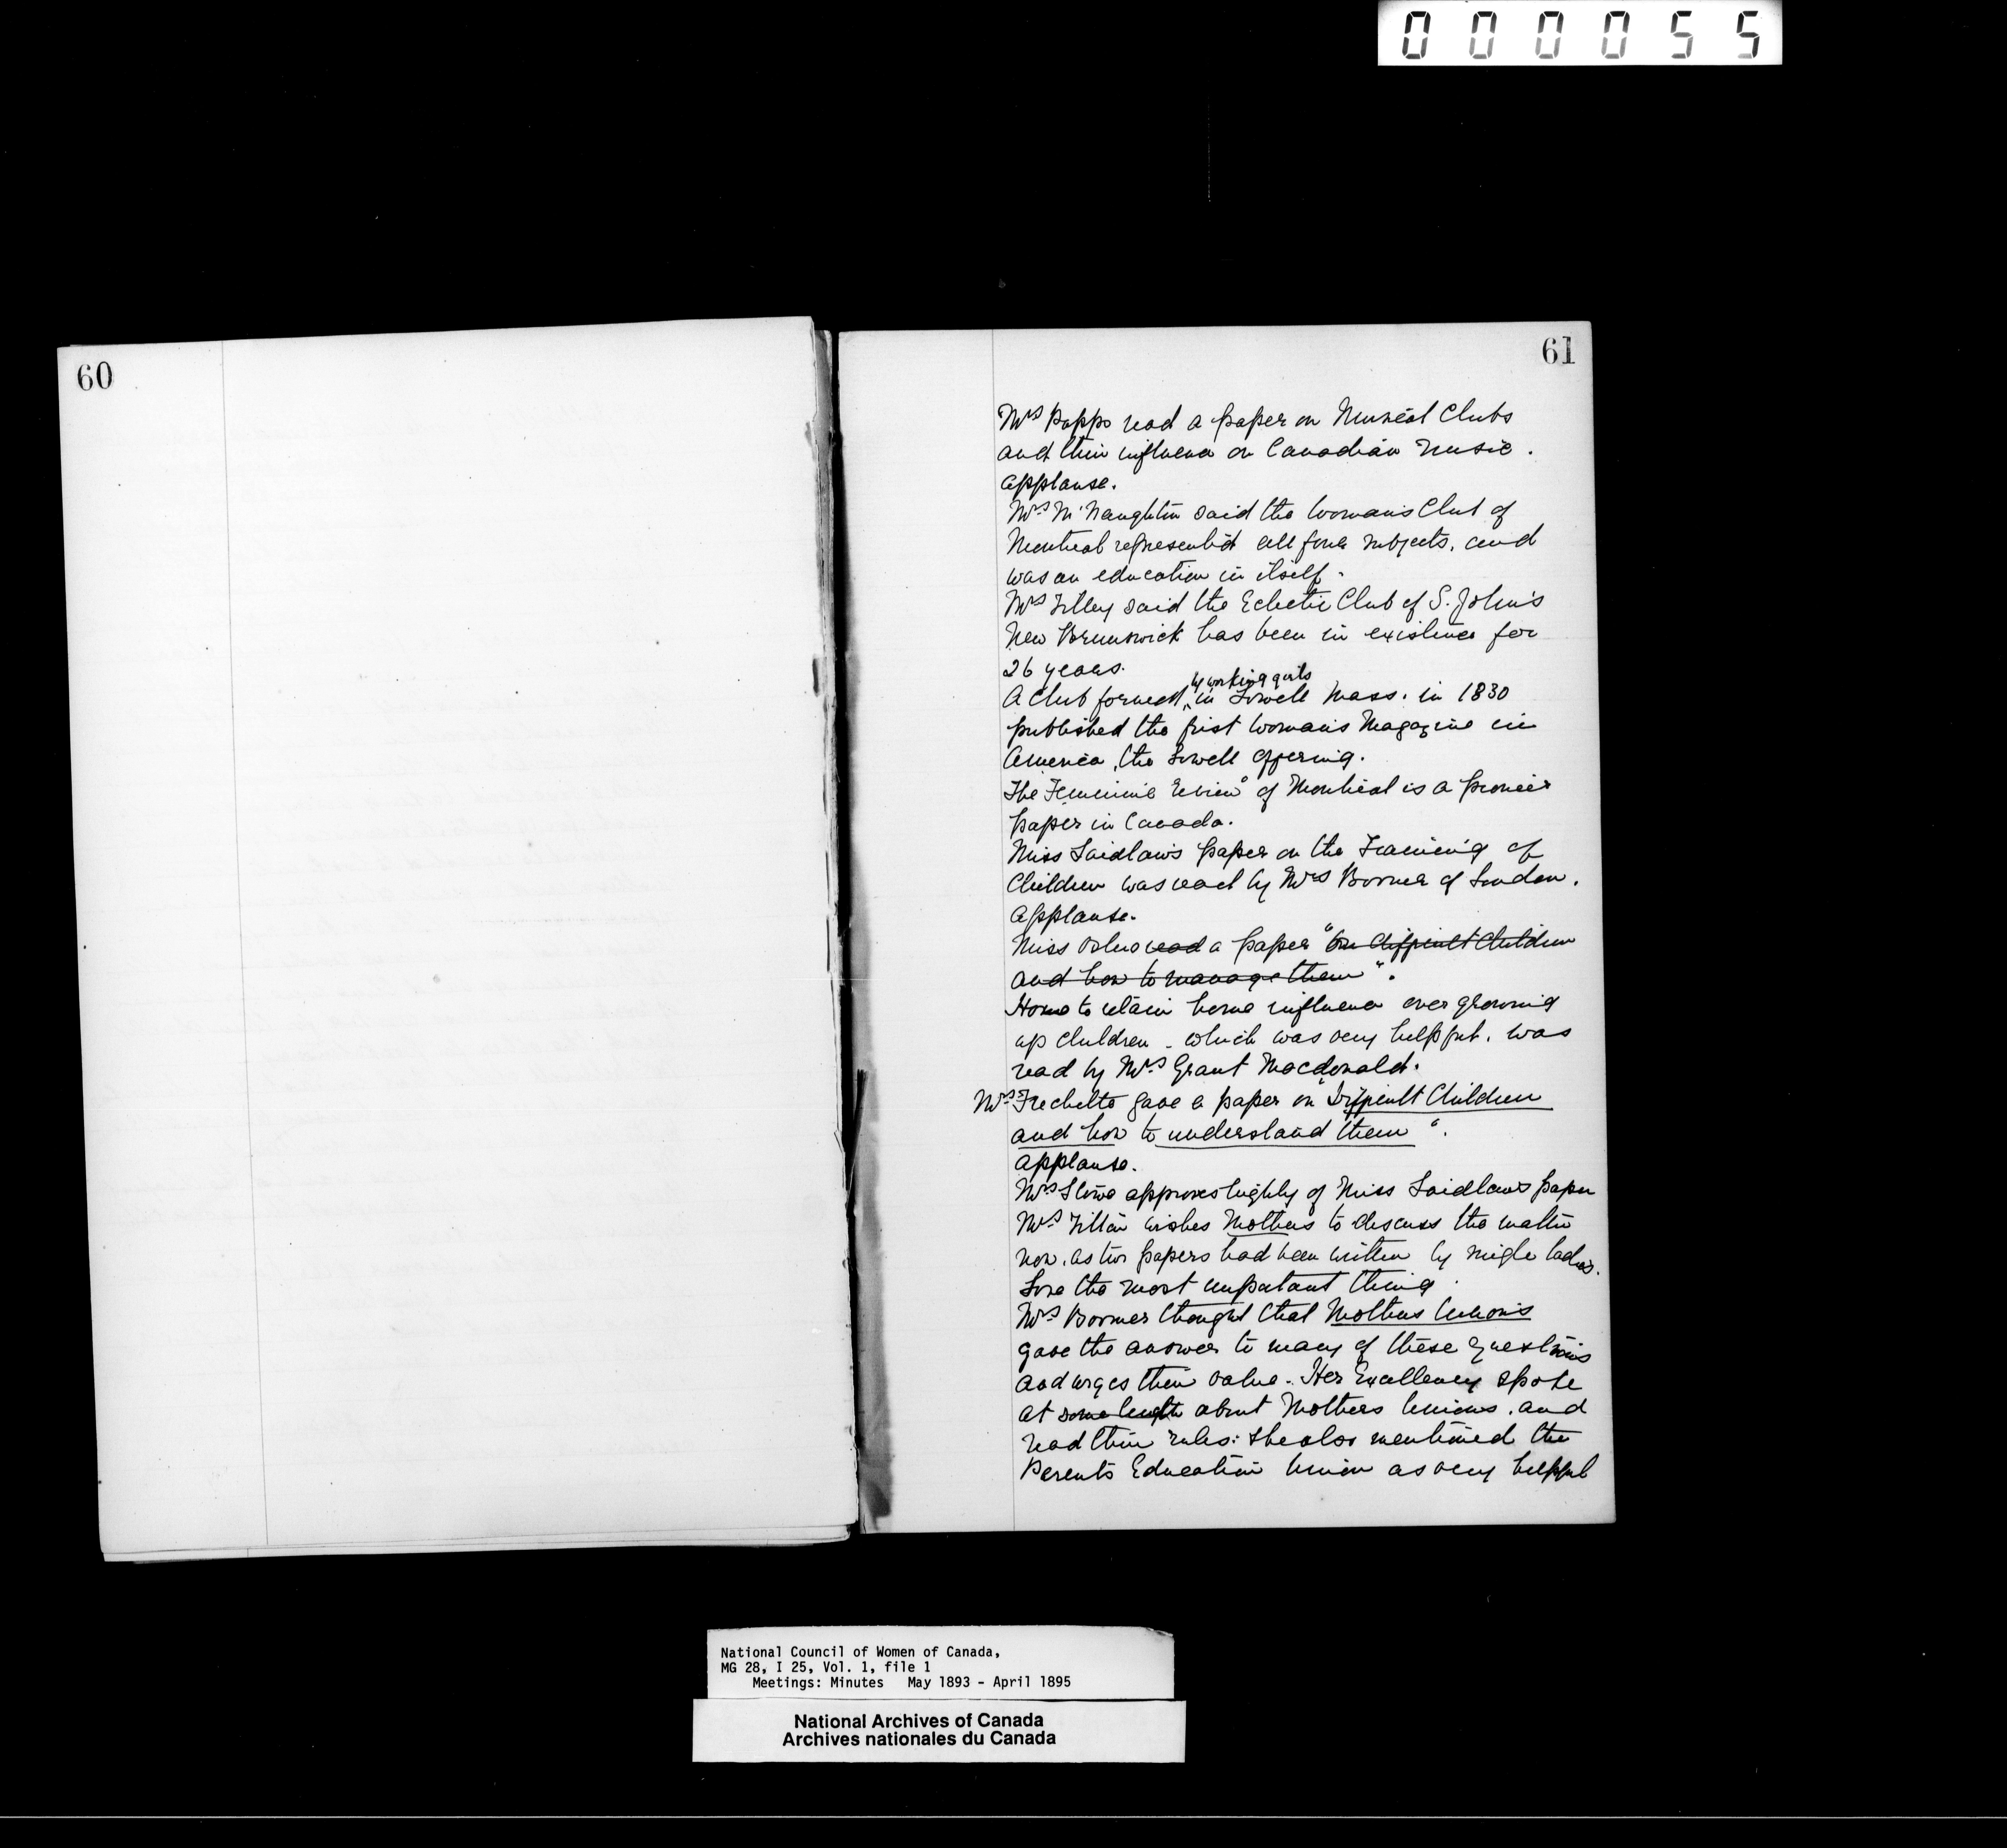 000055
60
61
Mrs Papps read a paper on Musical Clubs
and their influence on Canadian Music.
applause.
Mrs McNaughton said the Woman's Club of
Montreal represented all four subjects. and
was an education in itself.
Mrs Tilley said the Eclectic Club of S. John's
New Brunswick has been in existence for
26 years.
by working girls
A Club formed in Lowell Mass. in 1830
published the first Woman's Magazine in
America, the Lowell offering.
The Feminine review" of Montreal is a pioneer
paper in Canada.
Miss Laidlaw's paper on the Training of
Children was read by Mrs Boomer of London.
Applause.
Miss read a paper "on difficult Children
and how to manage them".
How to retain home influence over growing
up children - which was very helpful. was
read by Mrs Grant Macdonald.
Mrs Frechette gave a paper on "Difficult Children
and how to understand them".
applause.
Mrs Stowe approves highly of Miss Laidlaw's paper
Mrs wishes Mothers to discuss the matter
now. as two papers had been written by single ladies.
Love the most important thing.
Mrs Boomer thought that Mothers Unions
gave the answer to many of these questions
and urges their value. Her Excellency spoke
at some length about Mothers Unions. and
read their rules: she also mentioned the
Parents Education Union as very helpful
National Council of Women of Canada,
MG 28, I 25, Vol. 1, file 1
Meetings: Minutes May 1893 - April 1895
National Archives of Canada
Archives nationales du Canada